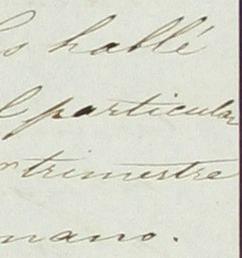 os hablé
l particular
trimestre
mano.